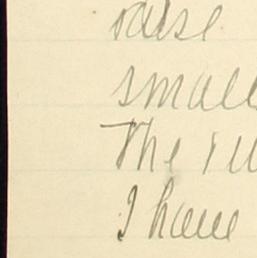 raise
small
The
I have